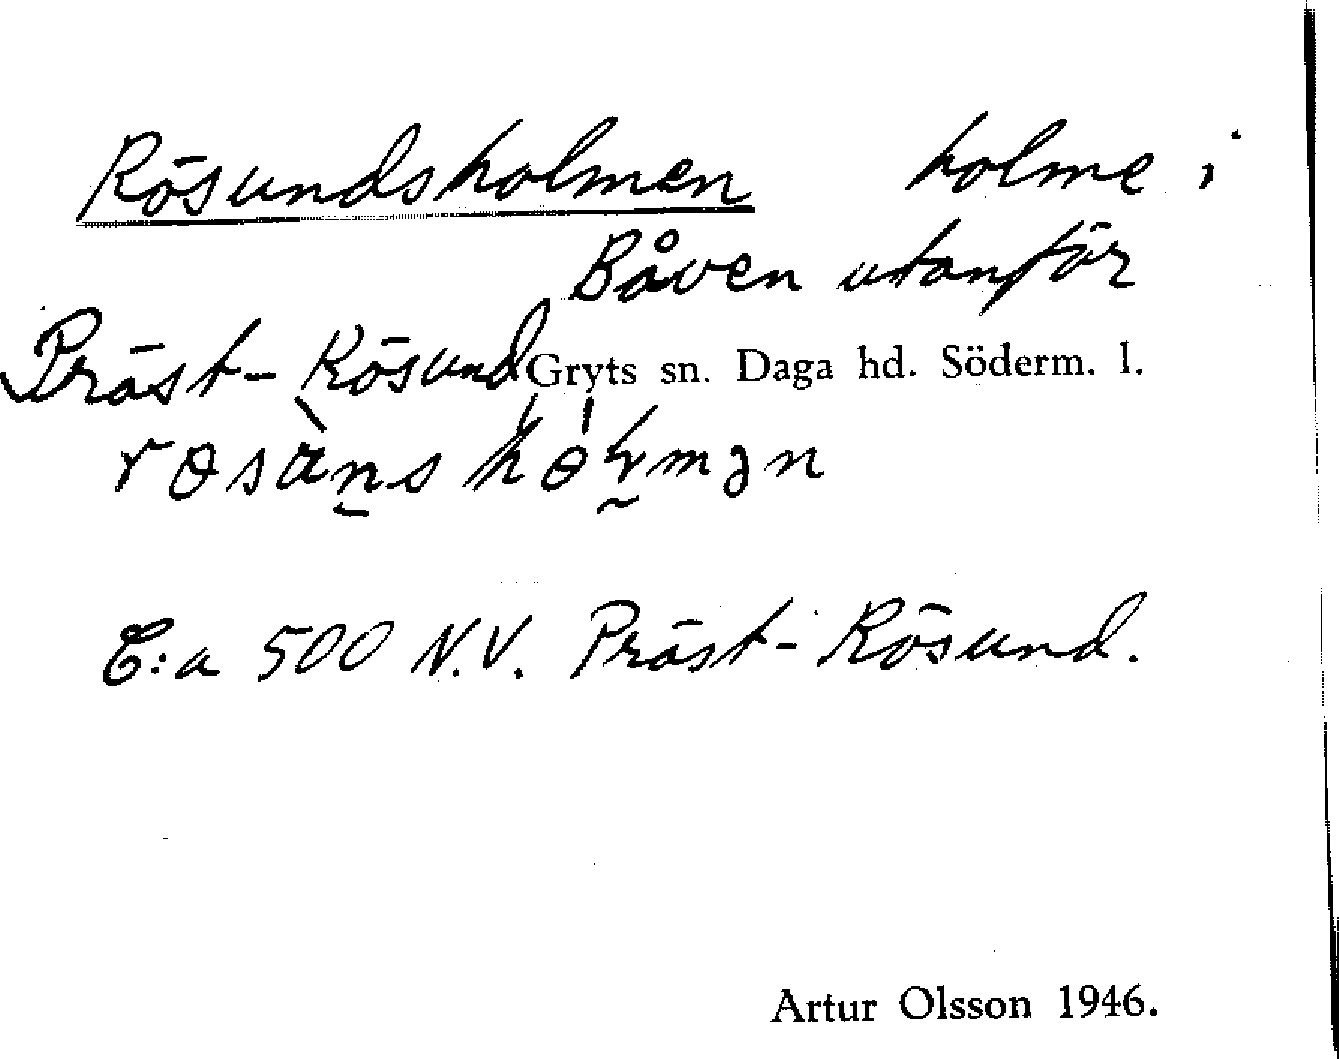 Rösundsholmen holme i
Båven utanför
Präst-Rösund Gryts sn. Daga hd. Söderm. l.
C:a 500 N.V. Präst-Rösund.
Artur Olsson 1946.